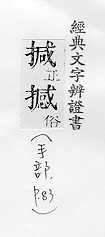 經典文字辨證書
㨔正
撼俗
(手部.
p.83)